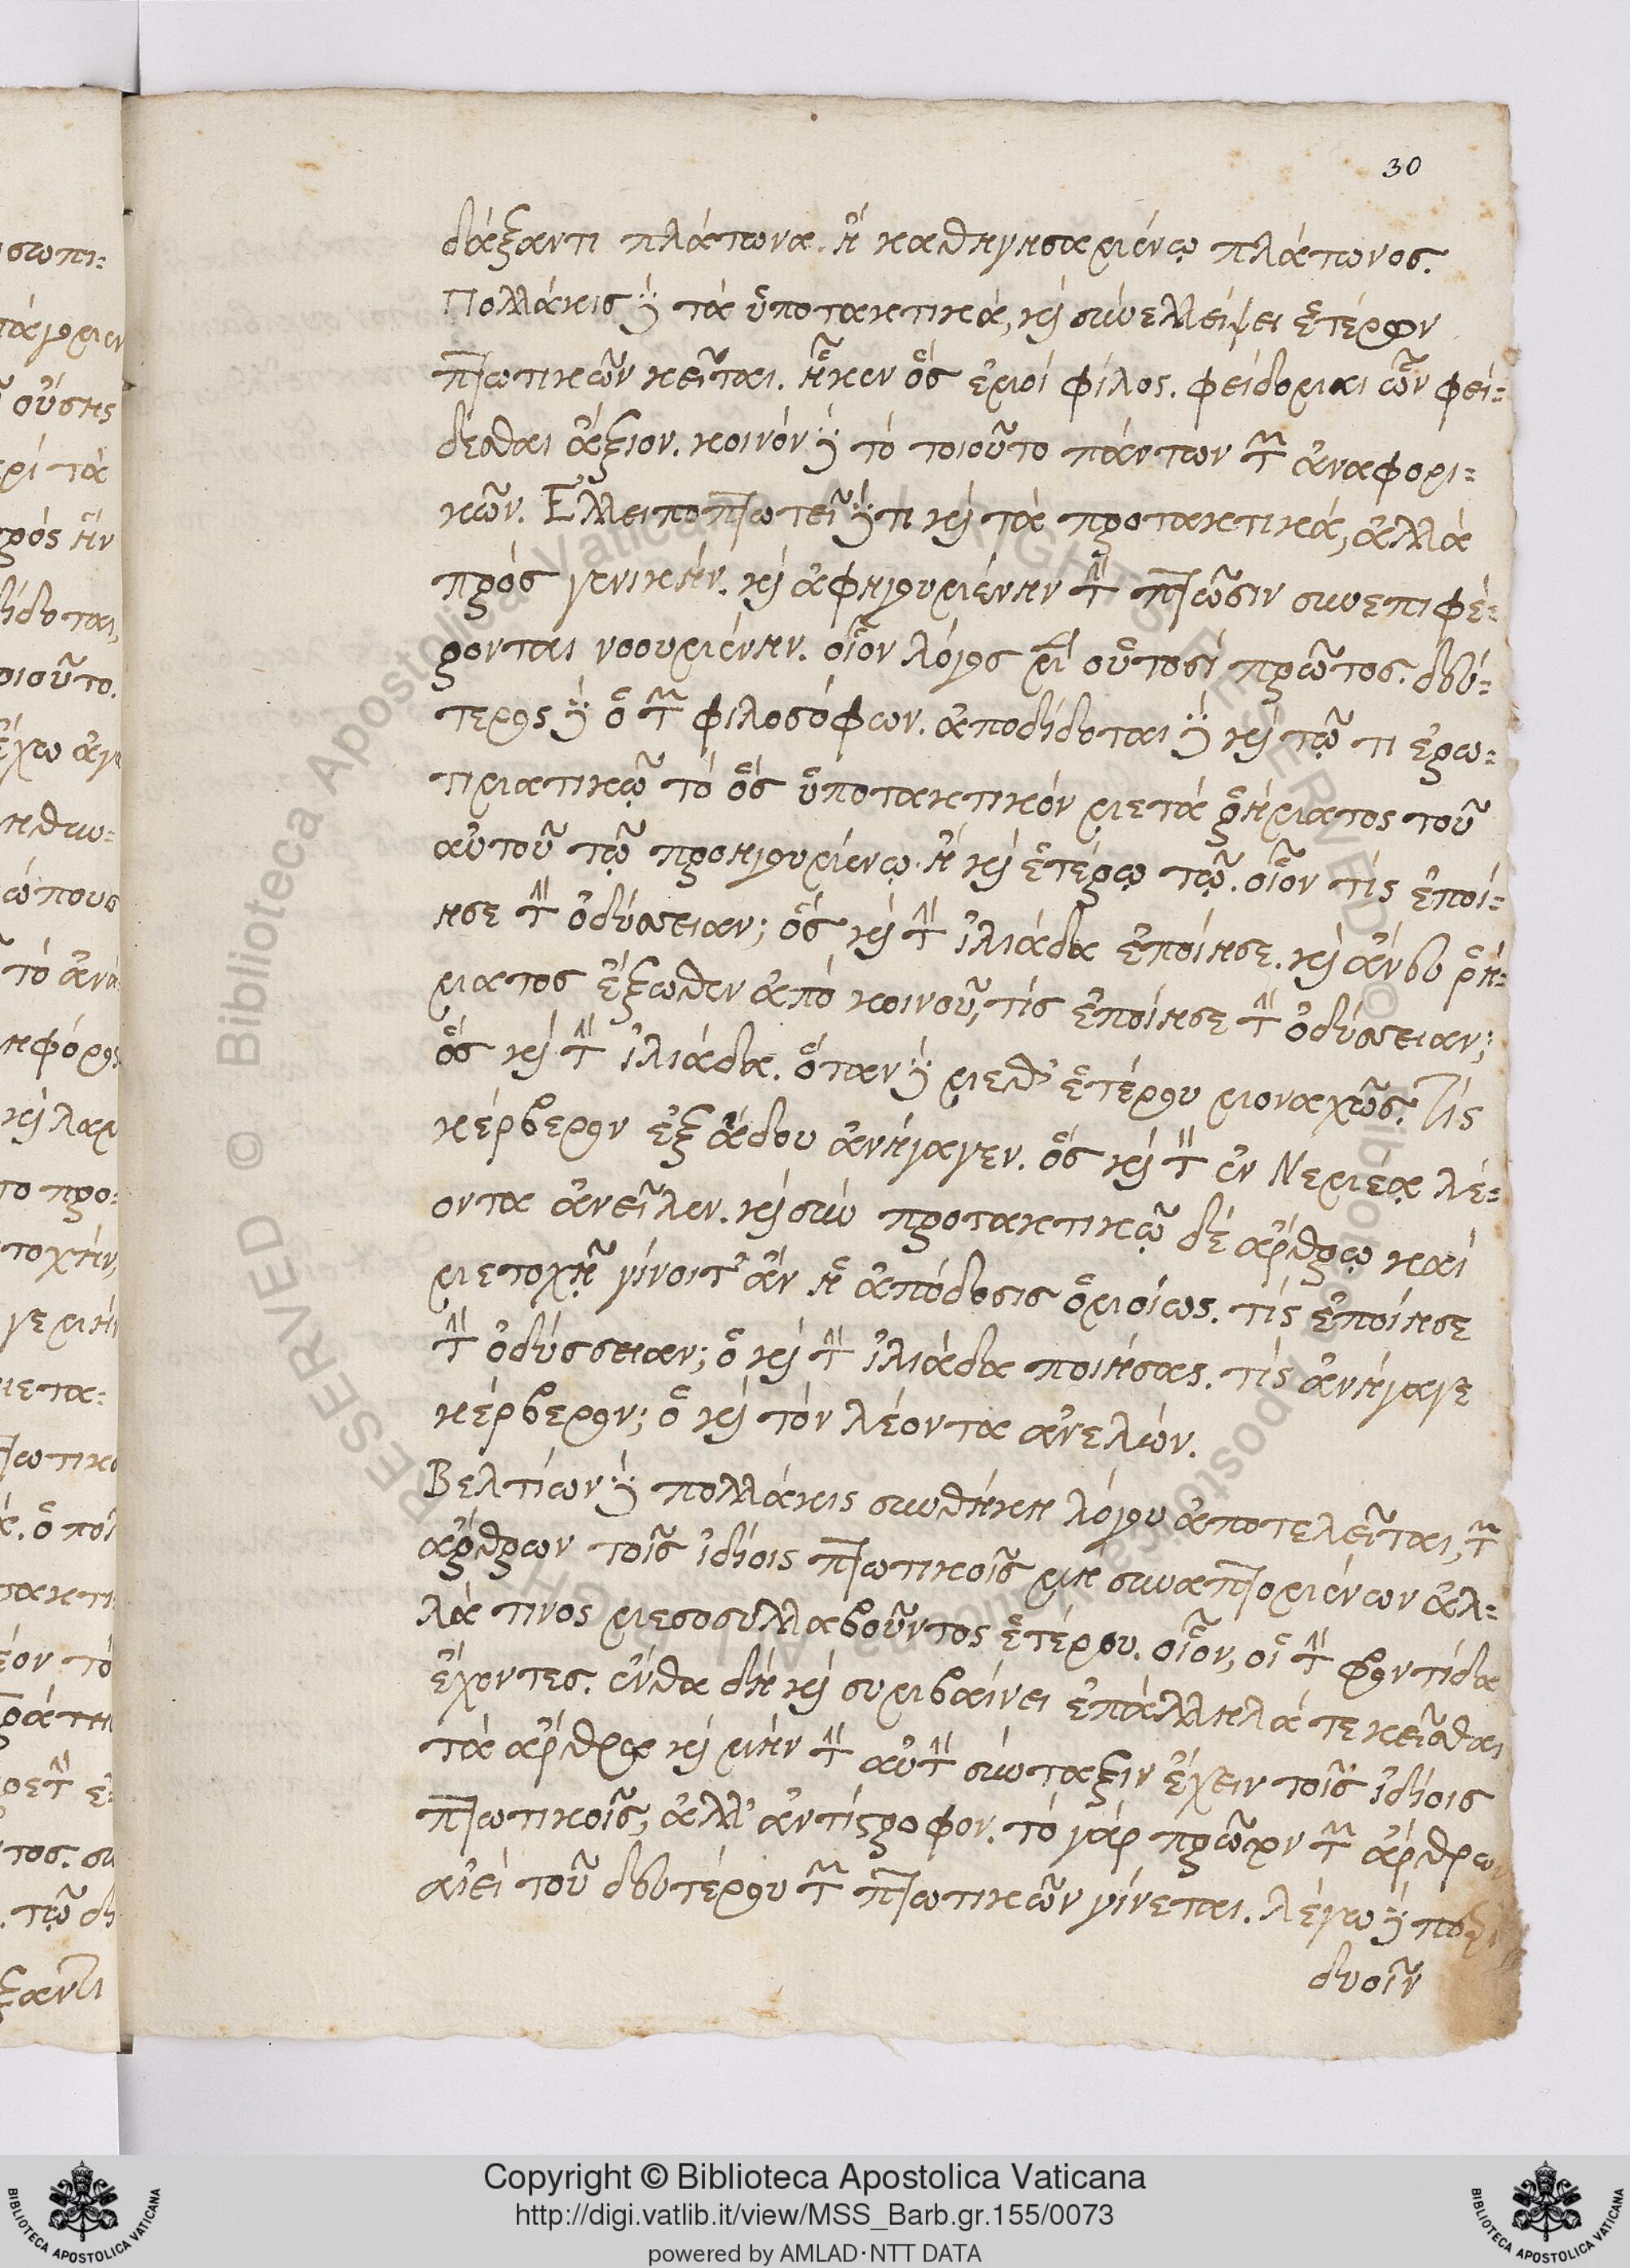 30
δάξαντι πλάτωνα. ἢ καθηγησαμένῳ πλάτωνος.
Πολλάκις δὲ τὰ ὑποτακτικά, καὶ σὺν ἐλλείψει ἑτέρων
πτωτικῶν κεῖται. ἧκεν ὃς ἐμοὶ φίλος. φείδομαι ὧν φεί=
δεσθαι ἄξιον. κοινὸν δὲ τὸ τοιοῦτο πάντων τῶν ἀναφορι=
κῶν. Ἐλλειποπτωτεῖ δέ τι καὶ τὰ προτακτικά, ἀλλὰ
πρὸς γενικὴν. καὶ ἀφηγουμένην τὴν πτῶσιν συνεπιφέ=
ρονται νοουμένην. οἷον λόγος μὲν οὑτοσὶ πρῶτος. δεύ=
τερος δὲ ὁ τῶν φιλοσόφων. ἀποδίδοται δὲ καὶ τῷ τι ἐρω=
τιματικῷ τὸ ὃς ὑποτακτικὸν μετὰ ῥήματος τοῦ
αὐτοῦ τῷ προηγουμένῳ. ἢ καὶ ἑτέρῳ τῷ. οἷον τίς ἐποί=
ησε τὴν ὀδύσσειαν; ὃς καὶ τὴν ἰλιάδα ἐποίησε. καὶ ἄνευ ῥή=
ματος ἔξωθεν ἀπὸ κοινοῦ, τίς ἐποίησε τὴν ὀδύσσειαν;
ὃς καὶ τὴν ἰλιάδα. ὅταν δὲ μεθ' ἑτέρου μοναχῶς. Τίς
κέρβερον ἐξ ἅδου ἀνήγαγεν. ὃς καὶ τὸν ἐν Νεμέᾳ λέ=
οντα ἀνεῖλεν. καὶ σὺν προτακτικῷ δὲ ἄρθρῳ καὶ
μετοχῇ γίνοιτ' ἂν ἡ ἀπόδοσις ὁμοίως. τίς ἐποίησε
τὴν ὀδύσσειαν; ὁ καὶ τὴν ἰλιάδα ποιήσας. τίς ἀνήγαγε
κέρβερον; ὁ καὶ τὸν λέοντα ἀνελών.
Βελτίων δὲ πολλάκις συνθήκη λόγου ἀποτελεῖται, τῶν
ἄρθρων τοῖς ἰδίοις πτωτικοῖς μὴ συναπτομένων ἀλ=
λά τινος μεσοσυλλαβοῦντος ἑτέρου. οἷον, οἱ τὴν φροντίδα
ἔχοντες. ἔνθα δὴ καὶ συμβαίνει ἐπάλληλά τε κεῖσθαι
τὰ ἄρθρα καὶ μὴν τὴν αὐτὴν σύνταξιν ἔχειν τοῖς ἰδίοις
πτωτικοῖς, ἀλλ' ἀντίστροφον. τὸ γὰρ πρῶτον τῶν ἄρθρων
αἰεὶ τοῦ δευτέρου τῶν πτωτικῶν γίνεται. λέγω δὲ
δυοῖν
Copyright © Biblioteca Apostolica Vaticana
http://digi.vatlib.it/view/MSS_Barb.gr.155/0073
powered by AMLAD·NTT DATA